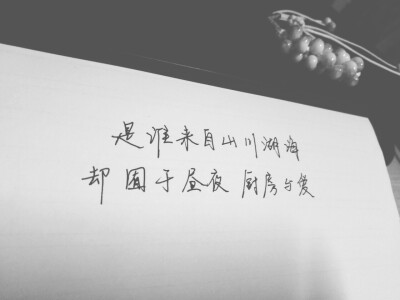 是谁来自山川湖海
却囿于昼夜 厨房与爱